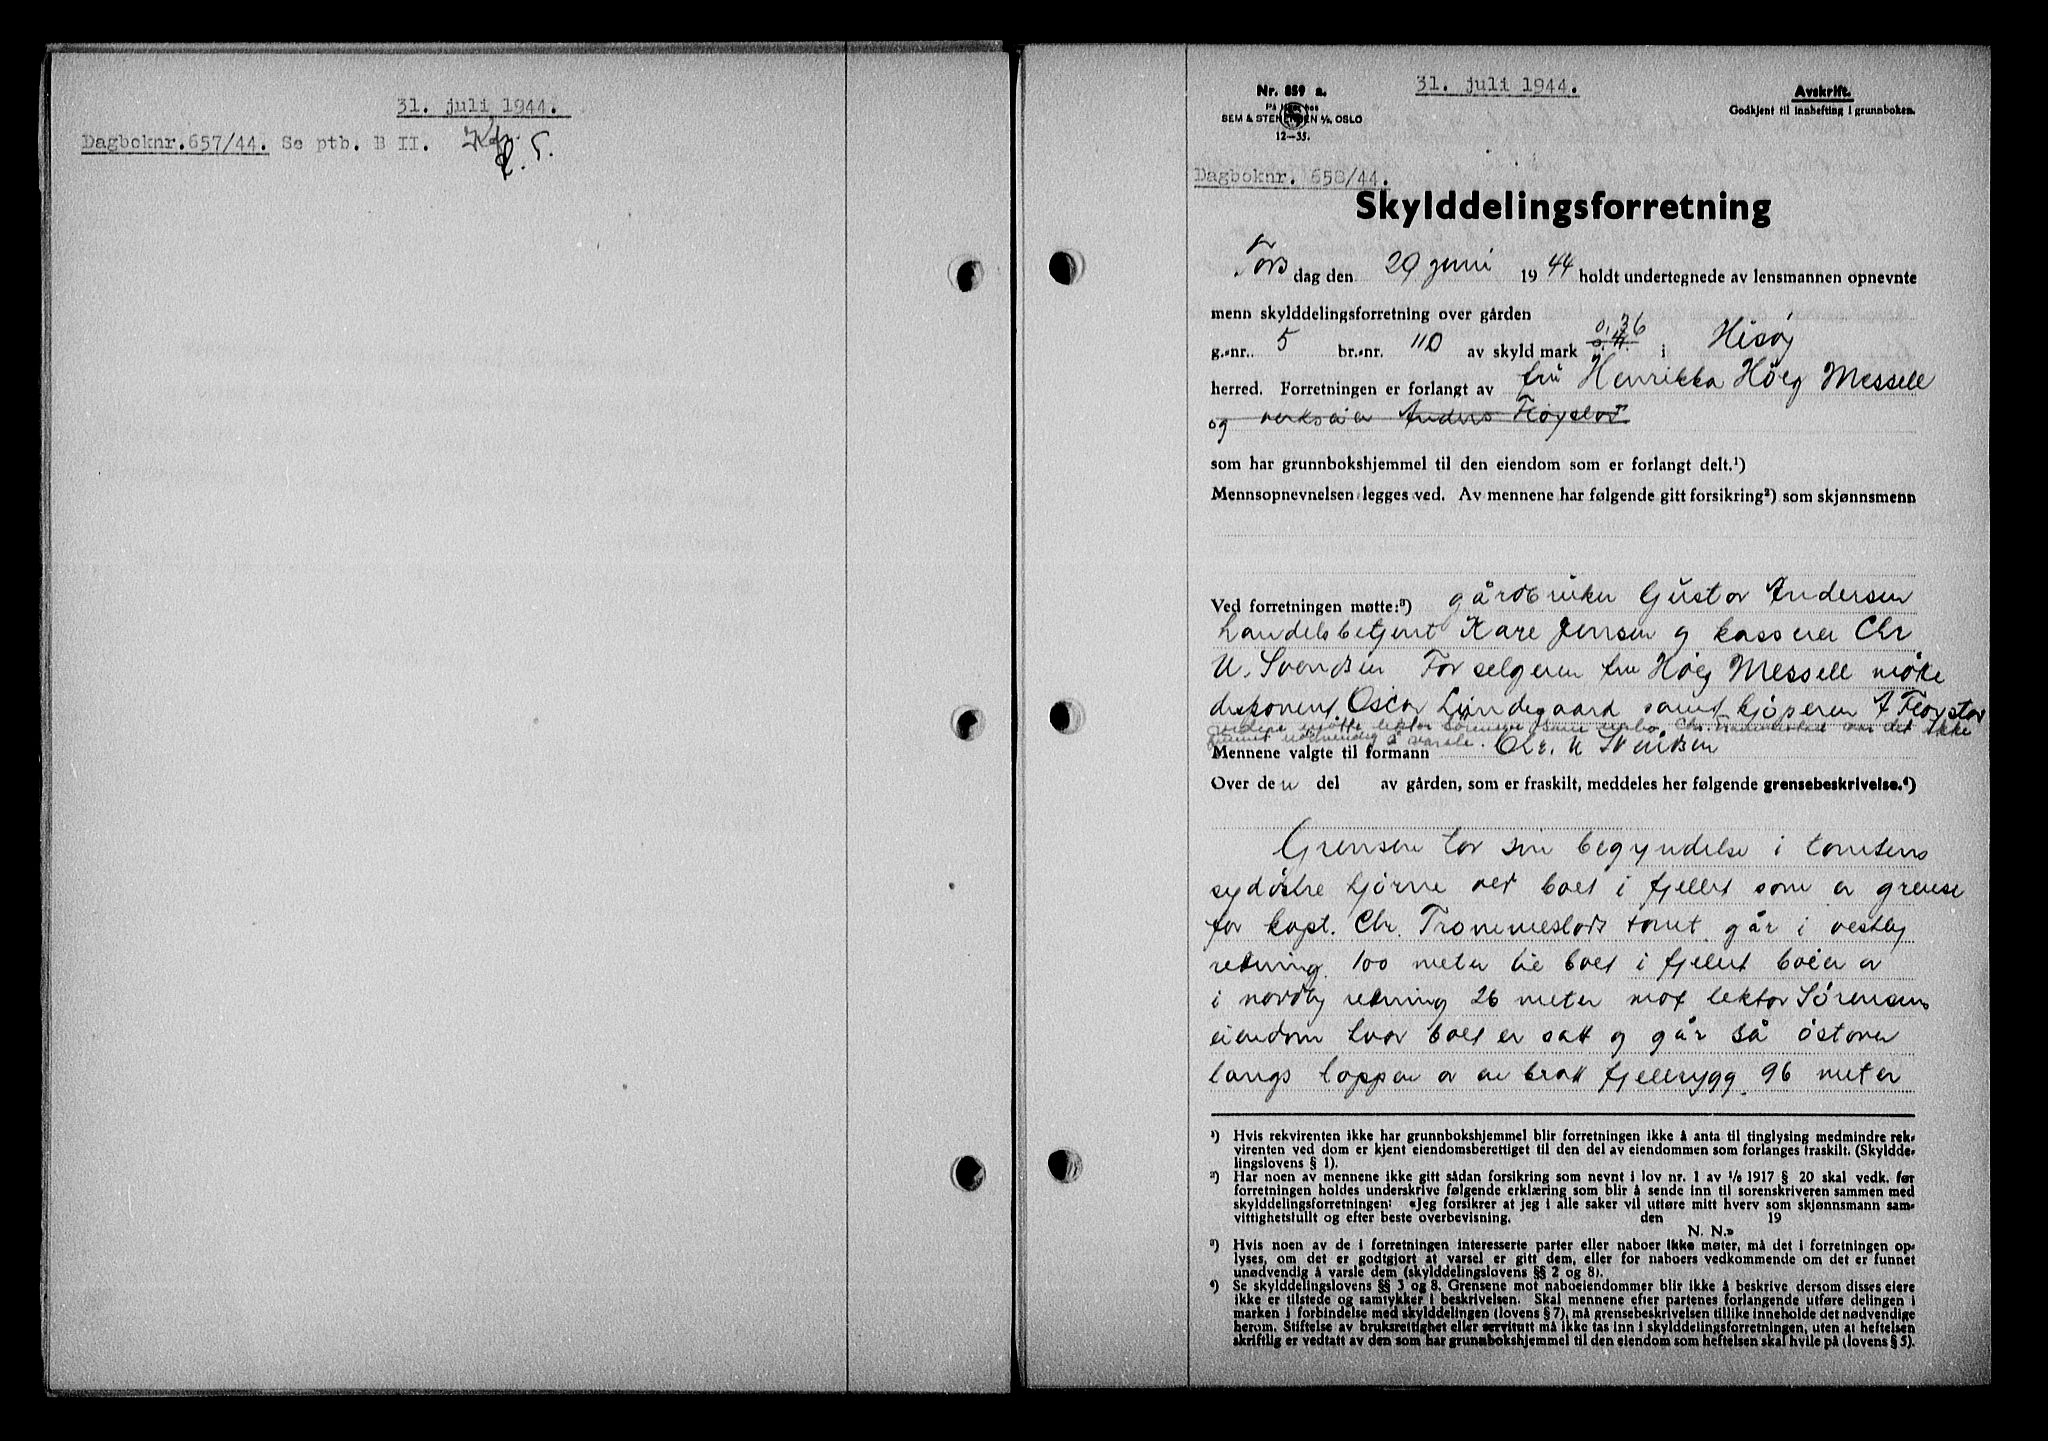 31. juli 1944.
Dagboknr. 657/44. Se ptb. B II.
31. juli 1944.
Nr. 859 a.
På lager hos
SEM & STENERSEN A/S, OSLO
12-35.
Avskrift.
Godkjent til innhefting i grunnboken.
Dagboknr. 658/44.
Skylddelingsforretning
Tors dag den 29 juni 1944 holdt undertegnede av lensmannen opnevnte
menn skylddelingsforretning over gården
g.-nr. 5 br.-nr. 110 av skyld mark 0.36 i Hisøy
herred. Forretningen er forlangt av fru Henrikka Høeg Messell
og verkseier Anders Fløystøl
som har grunnbokshjemmel til den eiendom som er forlangt delt.¹)
Mennsopnevnelsen legges ved. Av mennene har følgende gitt forsikring²) som skjønnsmenn
Ved forretningen møtte:³) gårdbruker Gustav Andersen
handelsbetjent Kåre Jensen og kasserer Chr
U. Svendsen For selgeren fru Høeg Messell møtte
disponent Oscar Lundegaard samt kjøperen A Fløystøl
videre møtte lektor Sørensen som nabo. Chr. var det ikke
funnet nødvendig å varsle.
Mennene valgte til formann Chr. U Svendsen
Over den del av gården, som er fraskilt, meddeles her følgende grensebeskrivelse.⁴)
Grensen tar sin begyndelse i tomtens
sydøstre hjørne ved bolt i fjellet som er grense
for kapt. Chr. tomt går i vestlig
retning 100 meter til bolt i fjellet bøier av
i nordlig retning 26 meter mot lektor Sørensens
eiendom hvor bolt er satt og går så østover
langs toppen av en bratt fjellrygg 96 meter
¹) Hvis rekvirenten ikke har grunnbokshjemmel blir forretningen ikke å anta til tinglysing medmindre rek-
virenten ved dom er kjent eiendomsberettiget til den del av eiendommen som forlanges fraskilt. (Skyldde-
lingslovens § 1).
²) Har noen av mennene ikke gitt sådan forsikring som nevnt i lov nr. 1 av 1/6 1917 § 20 skal vedk. før
forretningen holdes underskrive følgende erklæring som blir å sende inn til sorenskriveren sammen med
skylddelingsforretningen: «Jeg forsikrer at jeg i alle saker vil utføre mitt hverv som skjønnsmann sam-
vittighetsfullt og efter beste overbevisning. den 19
N. N.»
³) Hvis noen av de i forretningen interesserte parter eller naboer ikke møter, må det i forretningen op-
lyses, om det er godtgjort at varsel er gitt dem, eller for naboers vedkommende om det er funnet
unødvendig å varsle dem (skylddelingslovens §§ 2 og 8).
⁴) Se skylddelingslovens §§ 3 og 8. Grensene mot naboeiendommer blir ikke å beskrive dersom disses eiere
ikke er tilstede og samtykker i beskrivelsen. Skal mennene efter partenes forlangende utføre delingen i
marken i forbindelse med skylddelingen (lovens § 7), må grensebeskrivelsen tillike inneholde det nødvendige
herom. Stiftelse av bruksrettighet eller servitutt må ikke tas inn i skylddelingsforretningen, uten at heftelsen
skriftlig er vedtatt av den som har grunnbokshjemmel til den eiendom som heftelsen skal hvile på (lovens § 5).